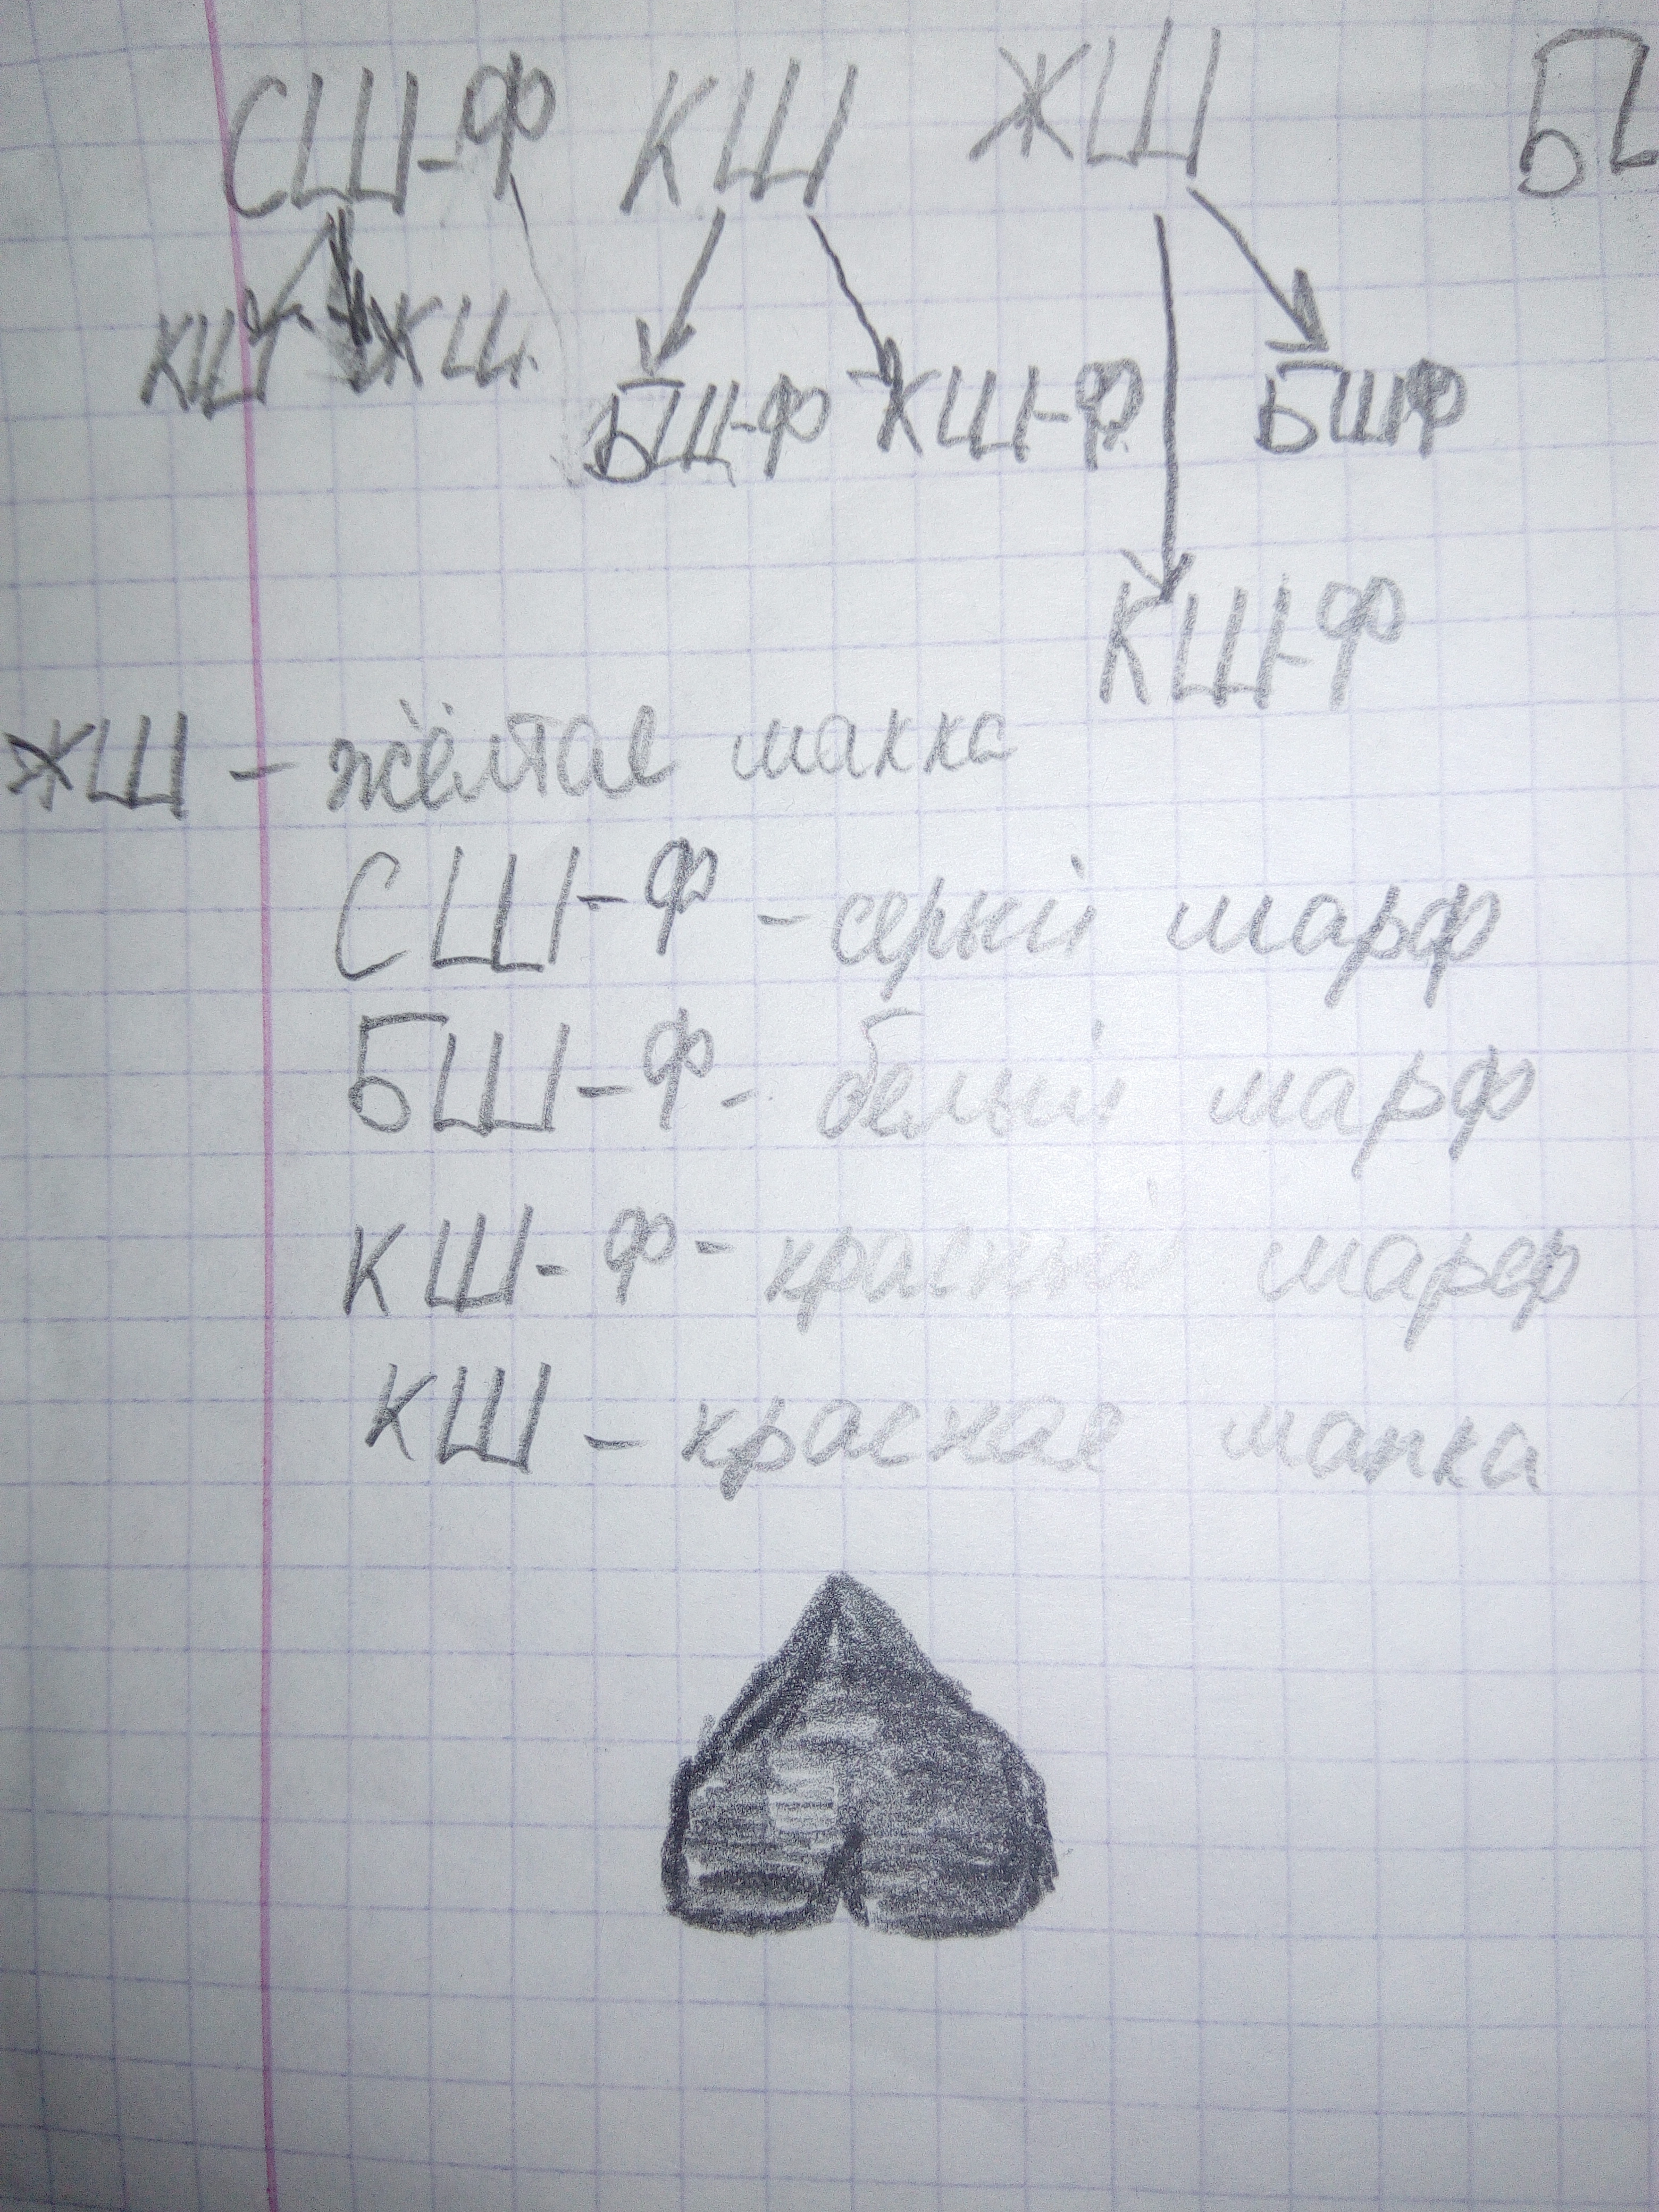 СШ-Ф КШ ЖШ
КШ ЖШ
БШ-Ф КШ-Ф БШФ
КШ-Ф
ЖШ - жёлтая шапка
СШ-Ф - серый шарф
БШ-Ф - белый шарф
КШ-Ф - красный шарф
КШ - красная шапка